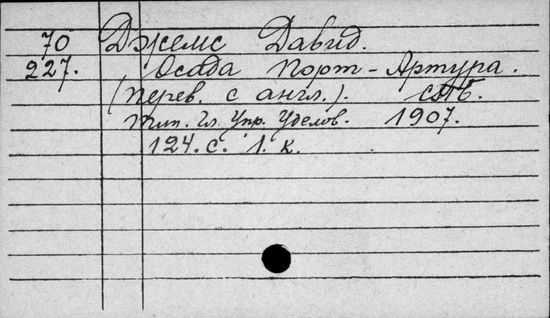 70 Джемс Давид.
227. Осада Порт-Артура.
(перев. с англ.). СПБ.
Тип. Гл. Упр. Уделов. 1907.
124. с. 1. к.